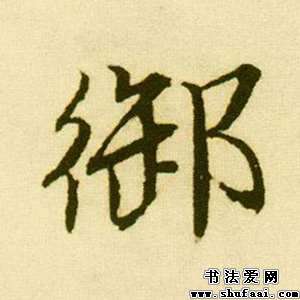 御
书法爱网
www.shufaai.com